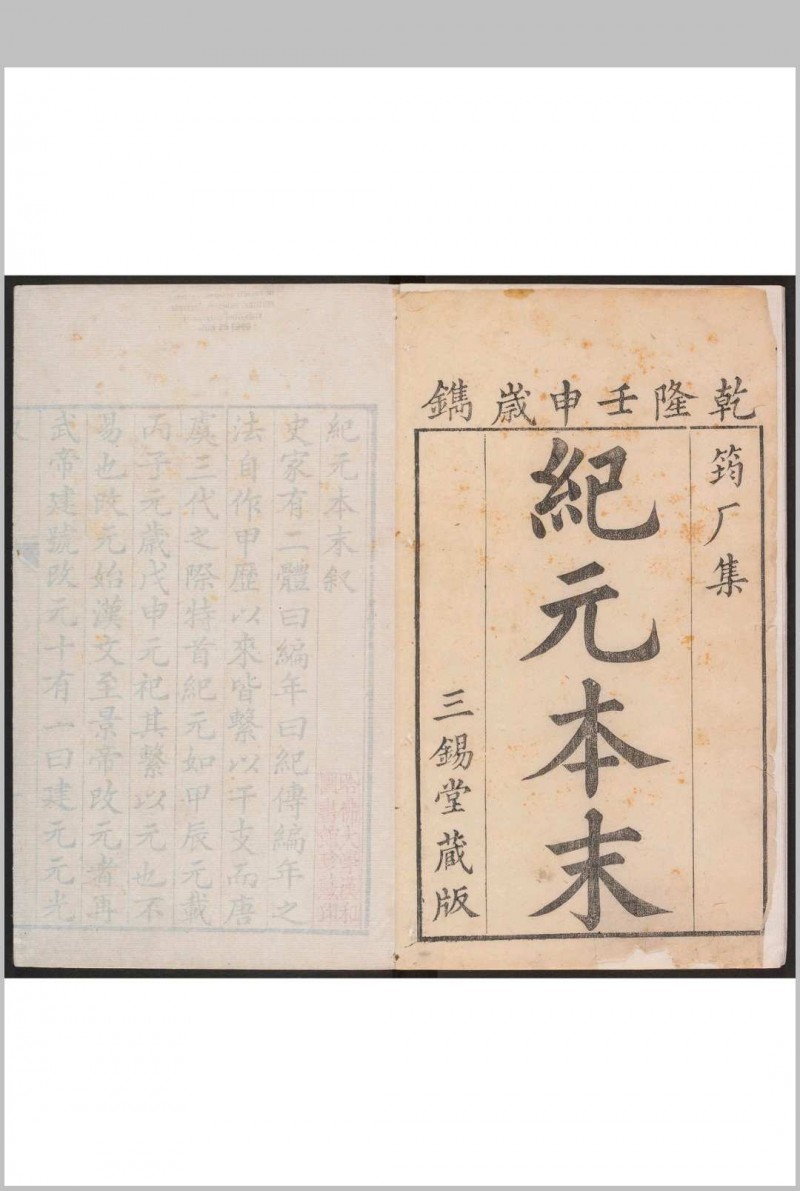 乾隆壬申歲鐫
筠厂集
紀元本末
三錫堂藏版
紀元本末叙
史家有二體曰編年曰紀傳編年之
法自作甲歷以來皆繫以干支而唐
虞三代之際特首紀元如甲辰元載
丙子元歲戊申元祀其繫以元也不
易也改元始漢文至景帝改元者再
武帝建號改元十有一曰建元元光